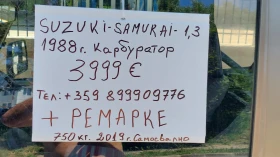 SUZUKI-SAMURAI-1,3
1988г. Карбуратор
3999 €
Тел: +359 899909776
+ РЕМАРКЕ
750 кг. 2019 г. Самосвално